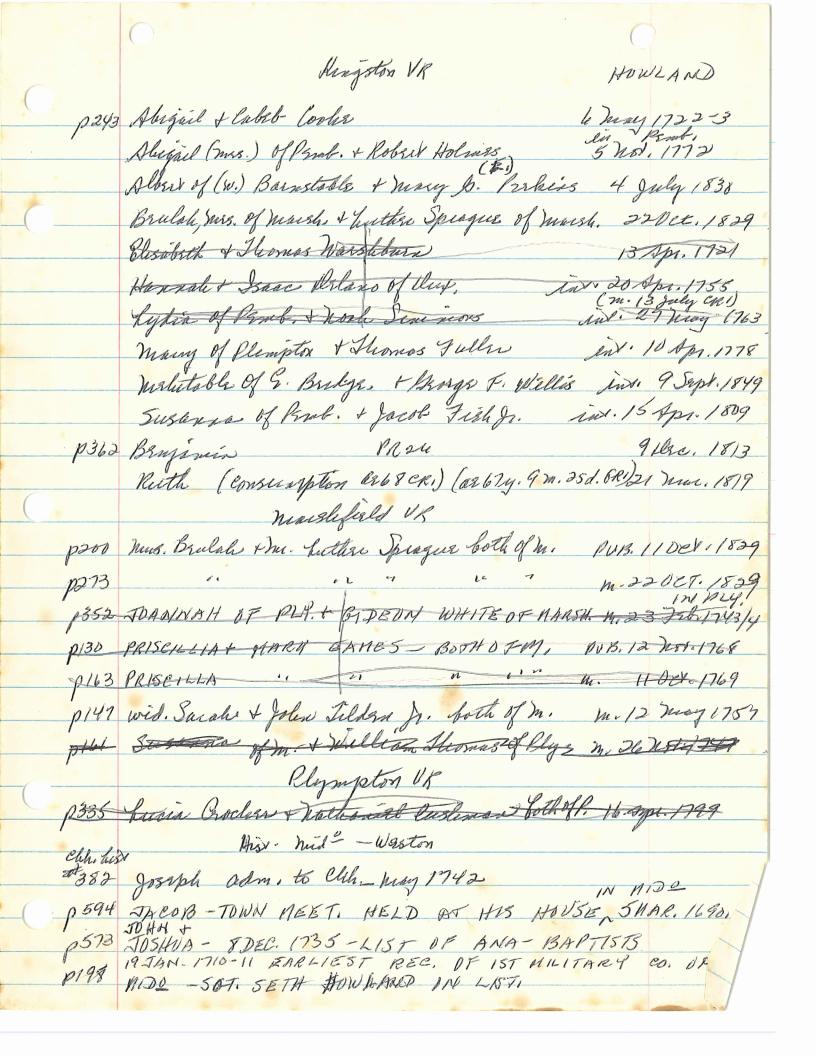 Kingston VR HOWLAND
p243 Abigail & Caleb Cooke 6 May 1722-3
Abigail (mrs.) of Pemb. & Robert Holmes in Pemb. 5 Nov. 1772
Albert of (w.) Barnstable & Mary G. Perkins 4 July 1838
Beulah, Mrs. of Marsh. & Luther Sprague of Marsh. 22 Oct. 1829
Elisabeth & Thomas Washburn 13 Apr. 1721
Hannah & Isaac Delano of Dux. int. 20 Apr. 1755
(m. 13 July CR1)
Lydia of Pemb. & Noah Simmons int. 27 May 1763
Mary of Plimpton & Thomas Fuller int. 10 Apr. 1778
Mehitable of E. Bridge. & George F. Willis int. 9 Sept. 1849
Susanna of Pemb. & Jacob Fish Jr. int. 15 Apr. 1809
p362 Benjamin PR26 9 Dec. 1813
Ruth (consumption ae 68 CR1) (ae 67y. 9m. 25d. GR1) 21 Mar. 1819
Marshfield VR
p200 Mrs. Beulah & Mr. Luther Sprague both of M. PUB. 11 OCT. 1829
p273 " " " " " m. 22 OCT. 1829
IN PLY.
p352 JOANNAH OF PLY. & GIDEON WHITE OF MARSH m. 23 Feb. 1743/4
p130 PRISCILLIA & MARK EAMES - BOTH OF M. PUB. 12 Nov. 1768
p163 PRISCILLA " " " " " m. 11 Oct. 1769
p147 wid. Sarah & John Tilden Jr. both of M. m. 12 May 1757
p161 of M. & William Thomas of Plyº m. 26
Plympton VR
p335 Lucia Crocker & Nathaniel Cushman both of P. 16 Apr. 1799
Hist. Midº - Weston
Chh. hist
382 Joseph adm. to Chh - May 1742
p594 JACOB - TOWN MEET. HELD AT HIS HOUSE IN MIDº 5 MAR. 1690.
JOHN &
p573 JOSHUA - 8 DEC. 1735 - LIST OF ANA-BAPTISTS
p198 19 JAN. 1710-11 EARLIEST REC. OF 1ST MILITARY CO. OF
MIDº - SGT. SETH HOWLAND IN LIST.